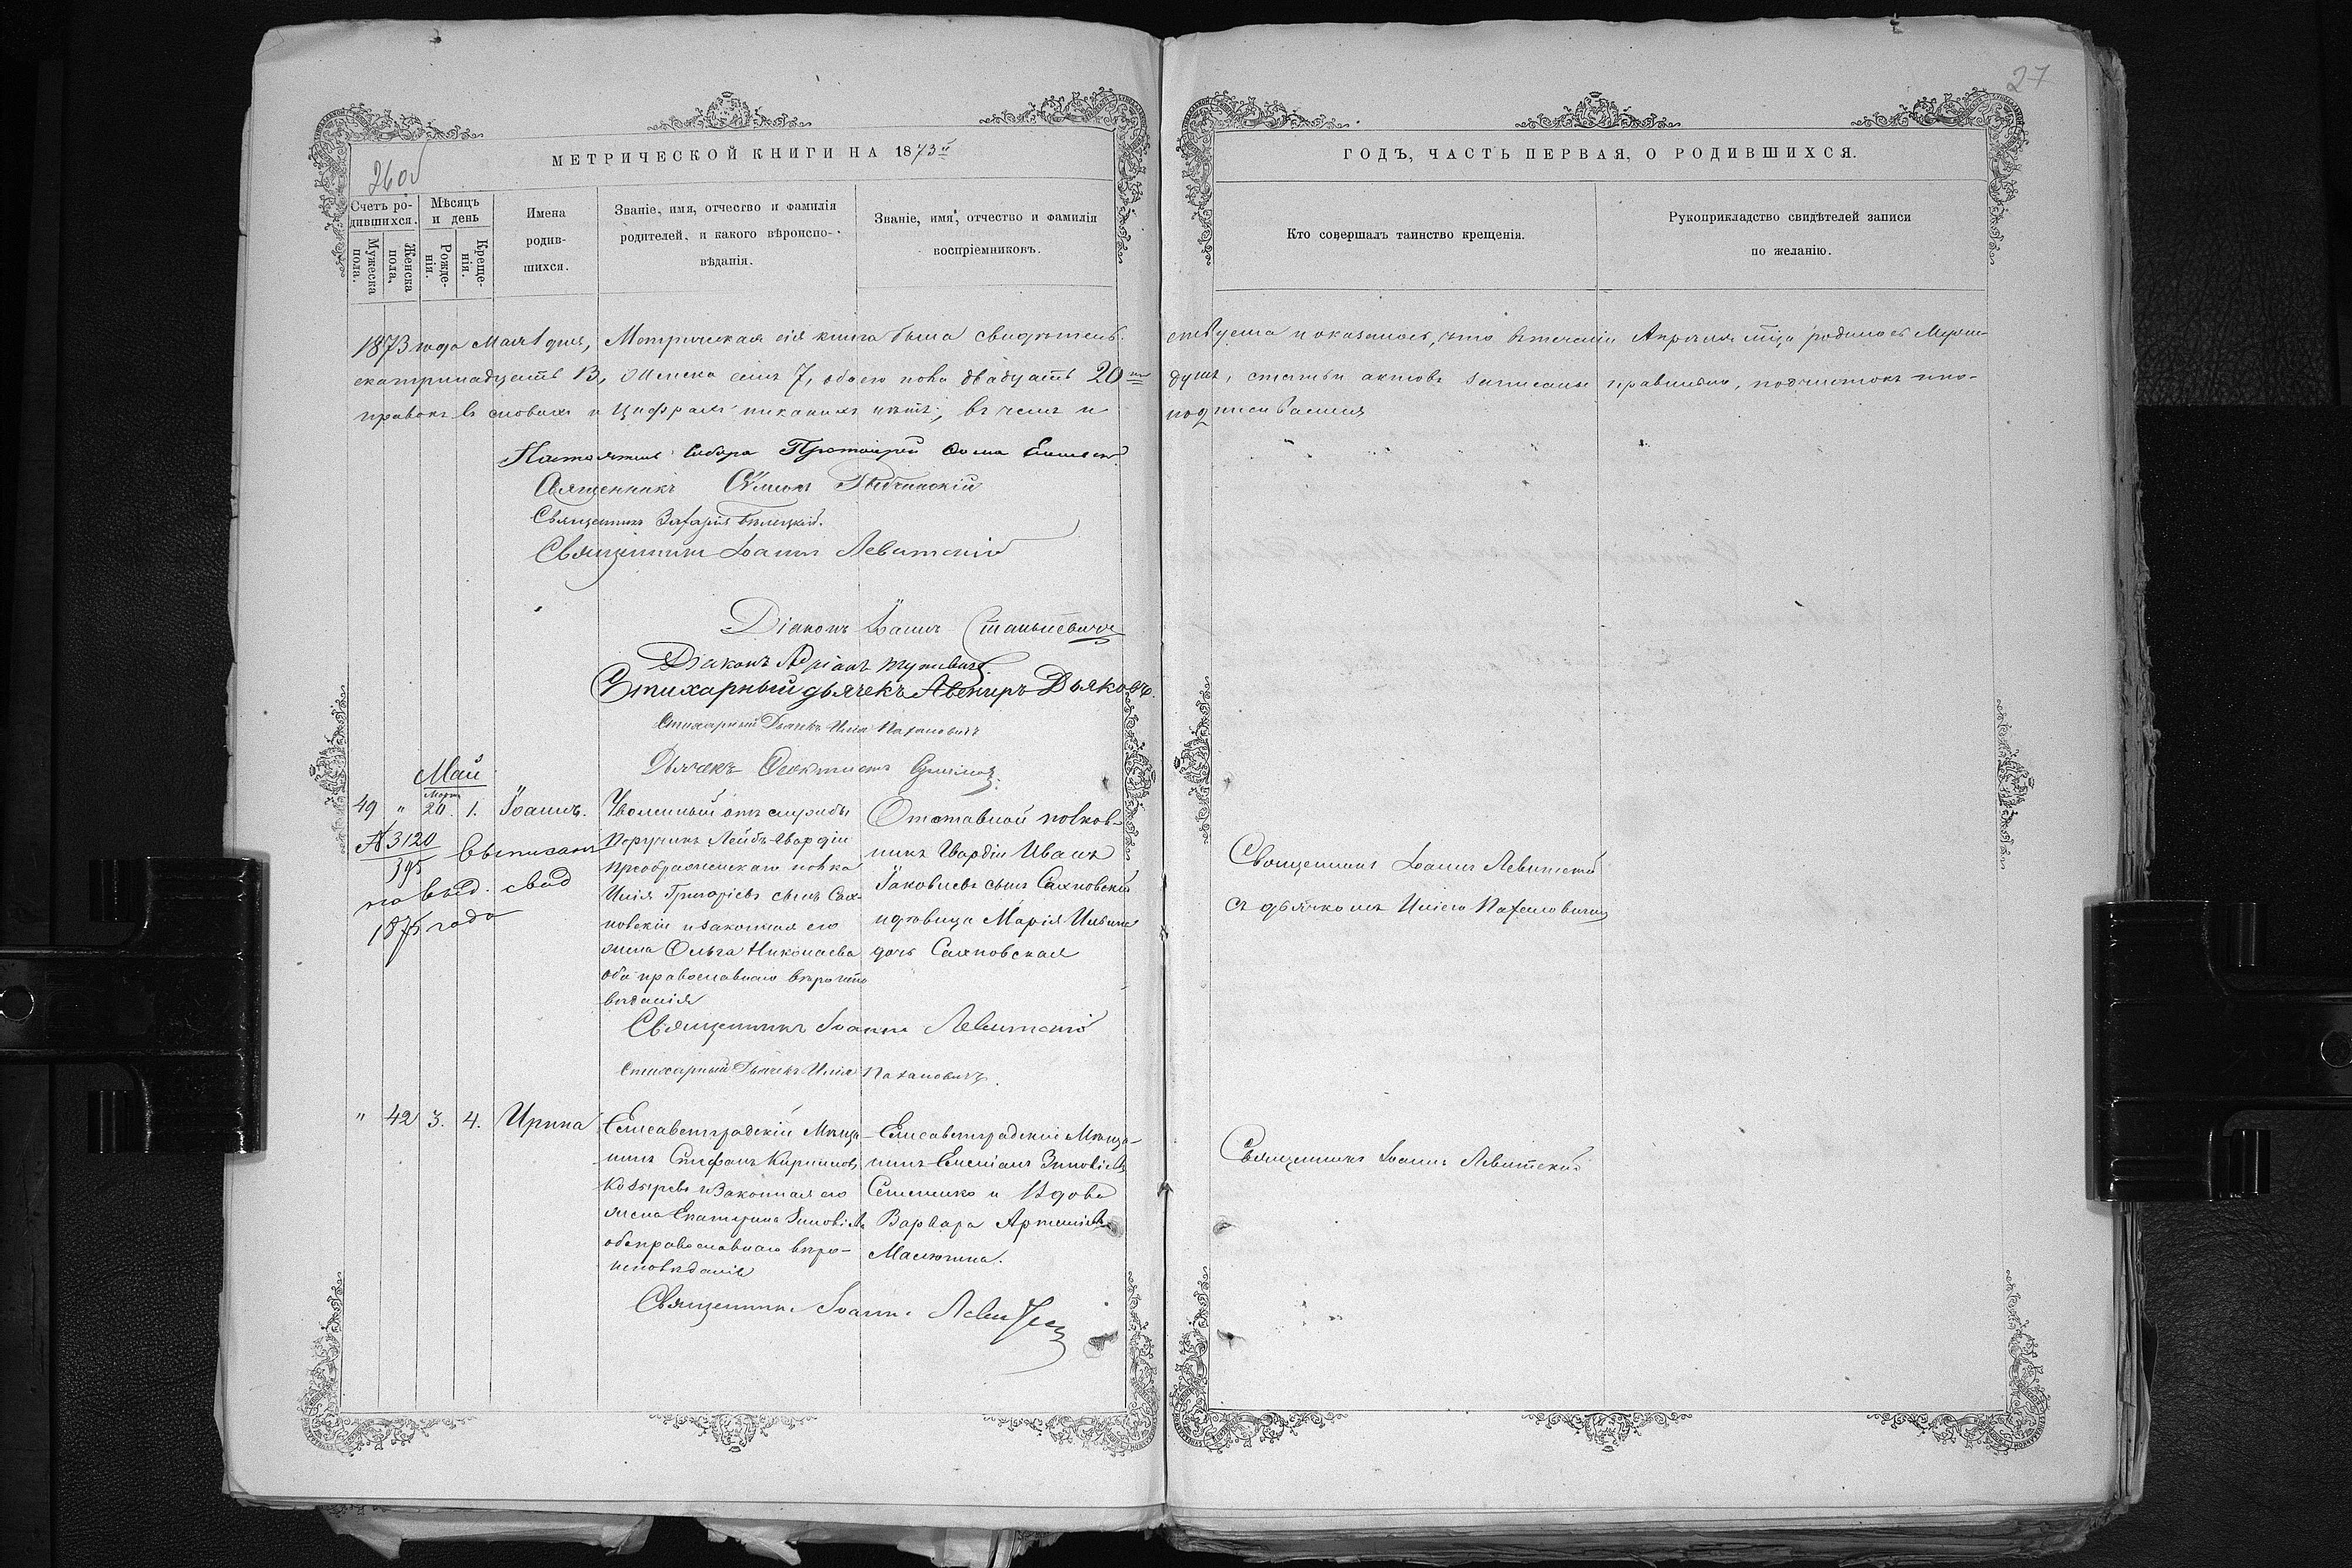 27
МЕТРИЧЕСКОЙ КНИГИ НА 1873й
ГОДЪ, ЧАСТЬ ПЕРВАЯ, О РОДИВШИХСЯ.
26об
Счетъ ро-
дившихся.
Мужеска
пола.
Женска
пола.
Мѣсяцъ
и день
Рожде-
нія.
Креще-
нія.
Имена
родив-
шихся.
Званіе, имя, отчество и фамилія
родителей, и какого вѣроиспо-
вѣданія.
Званіе, имя, отчество и фамилія
воспріемниковъ.
Кто совершалъ таинство крещенія.
Рукоприкладство свидѣтелей записи
по желанію.
1873 года Мая 1 дня, Метрическая сія книга была свидѣтель-
ствуема и оказалось, что въ теченіи Апрѣля мца родилось Муже-
ска тринадцать 13, Женска семь 7, обоего пола двадцать 20ть
душъ, статьи актовъ записаны правильно, подчистокъ и по-
правокъ въ словахъ и цифрахъ никакихъ нѣтъ, въ чемъ и
подписываемся
Собора Протоіерей Ѳома
Священникъ
Священникъ Захарія Бѣлецкій.
Священникъ Іоаннъ Левитскій
Діаконъ Іоаннъ Станкевичъ
Діаконъ Адріанъ
Стихарный дьячекъ Авениръ Дьяковъ.
Стихарный Дьячекъ Илія Пахановичъ
Дьячекъ Ѳеоктистъ
Май
49 " Марта 20. 1. Іоаннъ.
№ 3120
395
выписанъ
на выд. свид
1875 года
Уволенный отъ службы
Поручикъ Лейбъ Гвардіи
Преображенскаго полка
Илія Григоріевъ сынъ Сах-
новскій и законная его
жена Ольга Николаева
оба православнаго вѣроиспо
вѣданія
Отставной полков-
никъ Гвардіи Иванъ
Іаковлевъ сынъ Сахновскій
и дѣвица Марія Ильина
дочь Сахновская
Священникъ Іоаннъ Левитскій
съ дьячкомъ Иліею Пахановичемъ
Священникъ Іоаннъ Левитскій
Стихарный Дьячекъ Илія Пахановичъ.
" 42 3. 4. Ирина
Елисаветградскій Мѣща-
нинъ Стефанъ Кирилловъ
Козыревъ и Законная его
жена Екатерина Зиновіева
оба православнаго вѣро-
исповѣданія
Елисаветградскій Мѣща-
нинъ Емеліанъ Зиновіевъ
Семенко и Вдова
Варвара Артеміева
Малютина.
Священникъ Іоаннъ Левитскій
Священникъ Іоаннъ Левитскій